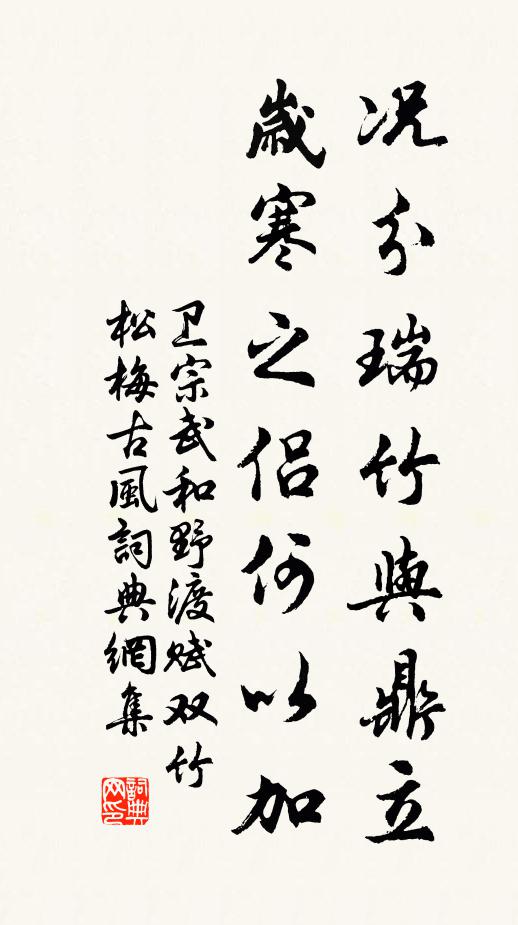 况分瑞竹與鼎立
歲寒之侣何以加
卫宗武和野渡赋双竹
松梅古風詞典網集
詞典
网印